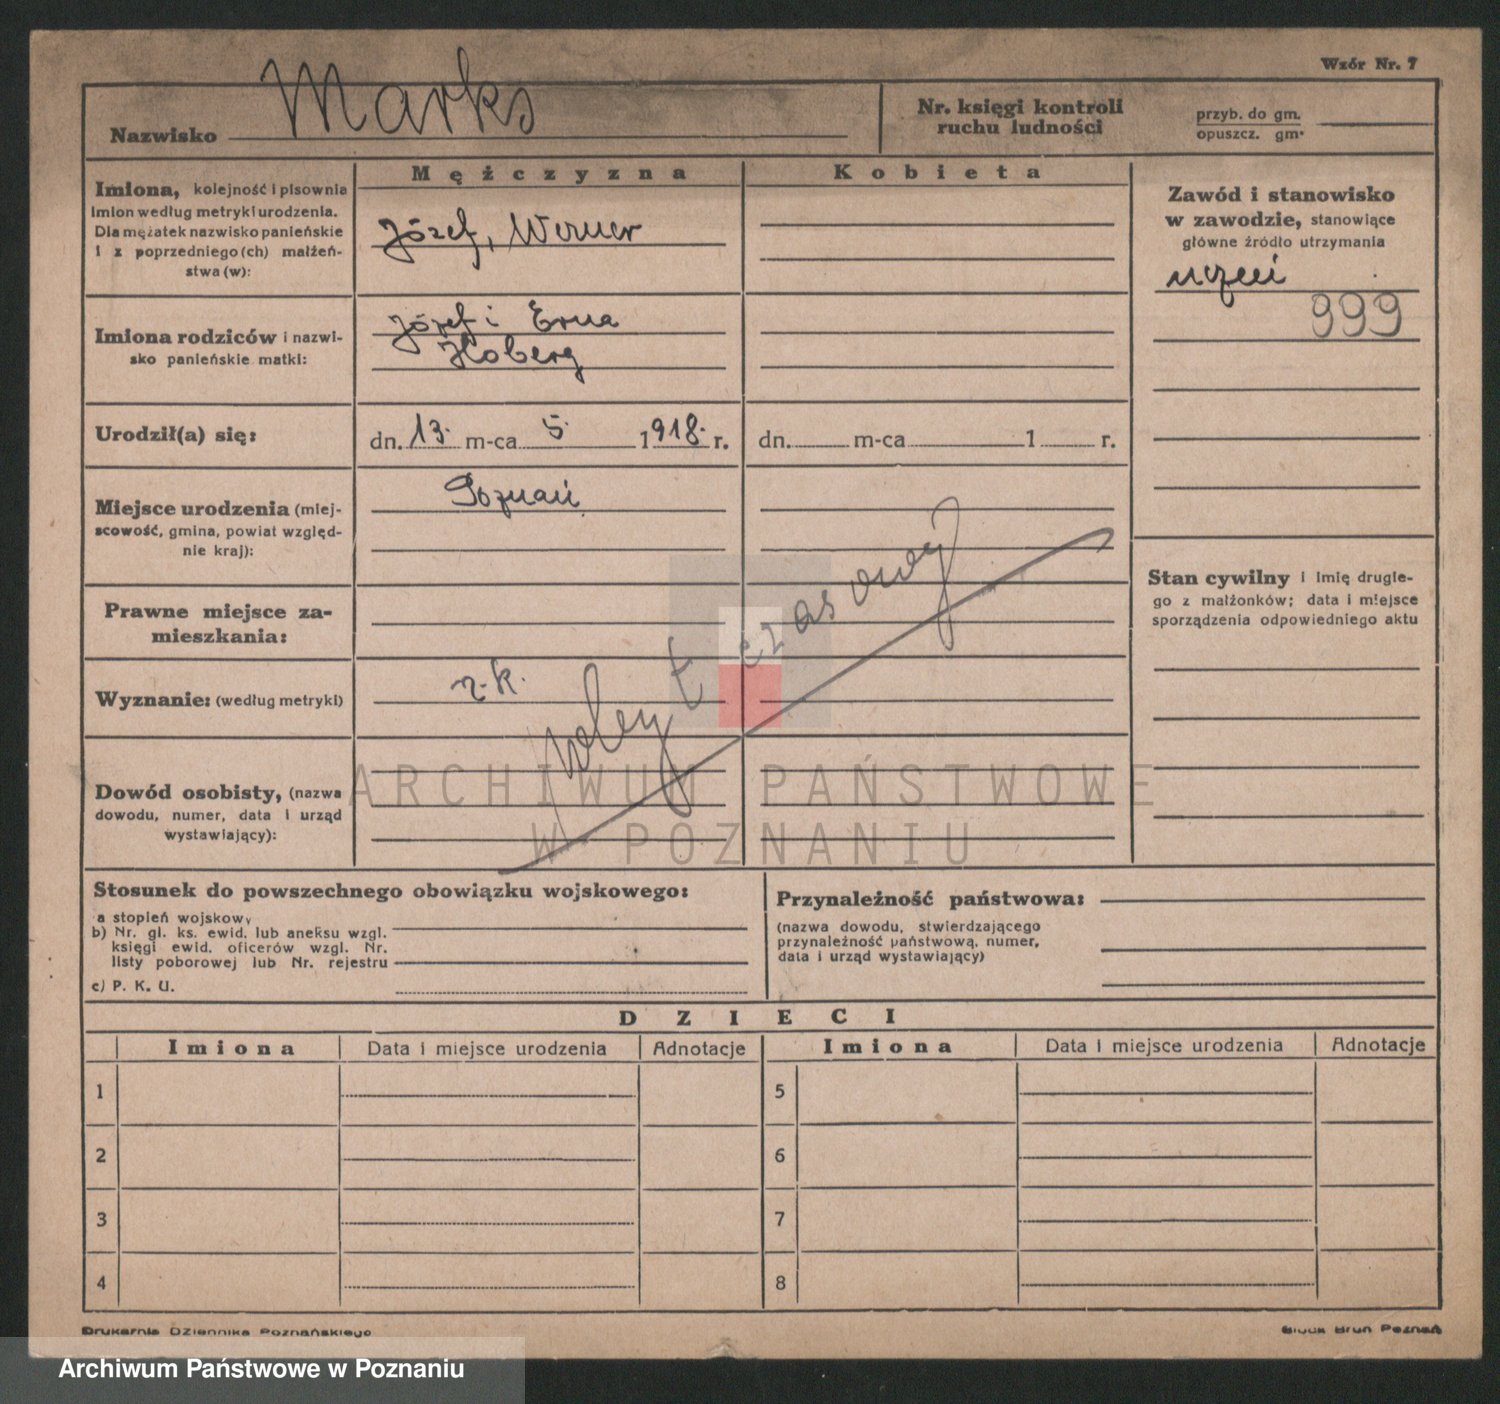 Wzór Nr. 7
Nazwisko Marks
Nr. księgi kontroli
ruchu ludności
przyb. do gm.
opuszcz. gm.
Mężczyzna
Kobieta
Imiona, kolejność i pisownia
imion według metryki urodzenia.
Dla mężatek nazwisko panieńskie
i z poprzedniego(ch) małżeń-
stwa(w):
Józef, Werner
Zawód i stanowisko
w zawodzie, stanowiące
główne źródło utrzymania
uczeń
999
Imiona rodziców i nazwi-
sko panieńskie matki:
Józef i Erna
Hoberg
Urodził(a) się:
dn. 13. m-ca 5. 1918. r.
dn. m-ca 1 r.
Miejsce urodzenia (miej-
scowość, gmina, powiat względ-
nie kraj):
Poznań
Prawne miejsce za-
mieszkania:
Stan cywilny i imię drugie-
go z małżonków; data i miejsce
sporządzenia odpowiedniego aktu
Wyznanie: (według metryki)
r.k.
czasowy
Dowód osobisty, (nazwa
dowodu, numer, data i urząd
wystawiający):
ARCHIWUM PAŃSTWOWE
W POZNANIU
Stosunek do powszechnego obowiązku wojskowego:
a stopień wojskowy
b) Nr. gł. ks. ewid. lub aneksu wzgl.
księgi ewid. oficerów wzgl. Nr.
listy poborowej lub Nr. rejestru
c) P. K. U.
Przynależność państwowa:
(nazwa dowodu, stwierdzającego
przynależność państwową, numer,
data i urząd wystawiający)
DZIECI
Imiona Data i miejsce urodzenia Adnotacje Imiona Data i miejsce urodzenia Adnotacje
1 5
2 6
3 7
4 8
Drukarnia Dziennika Poznańskiego
Block Brun Poznań
Archiwum Państwowe w Poznaniu